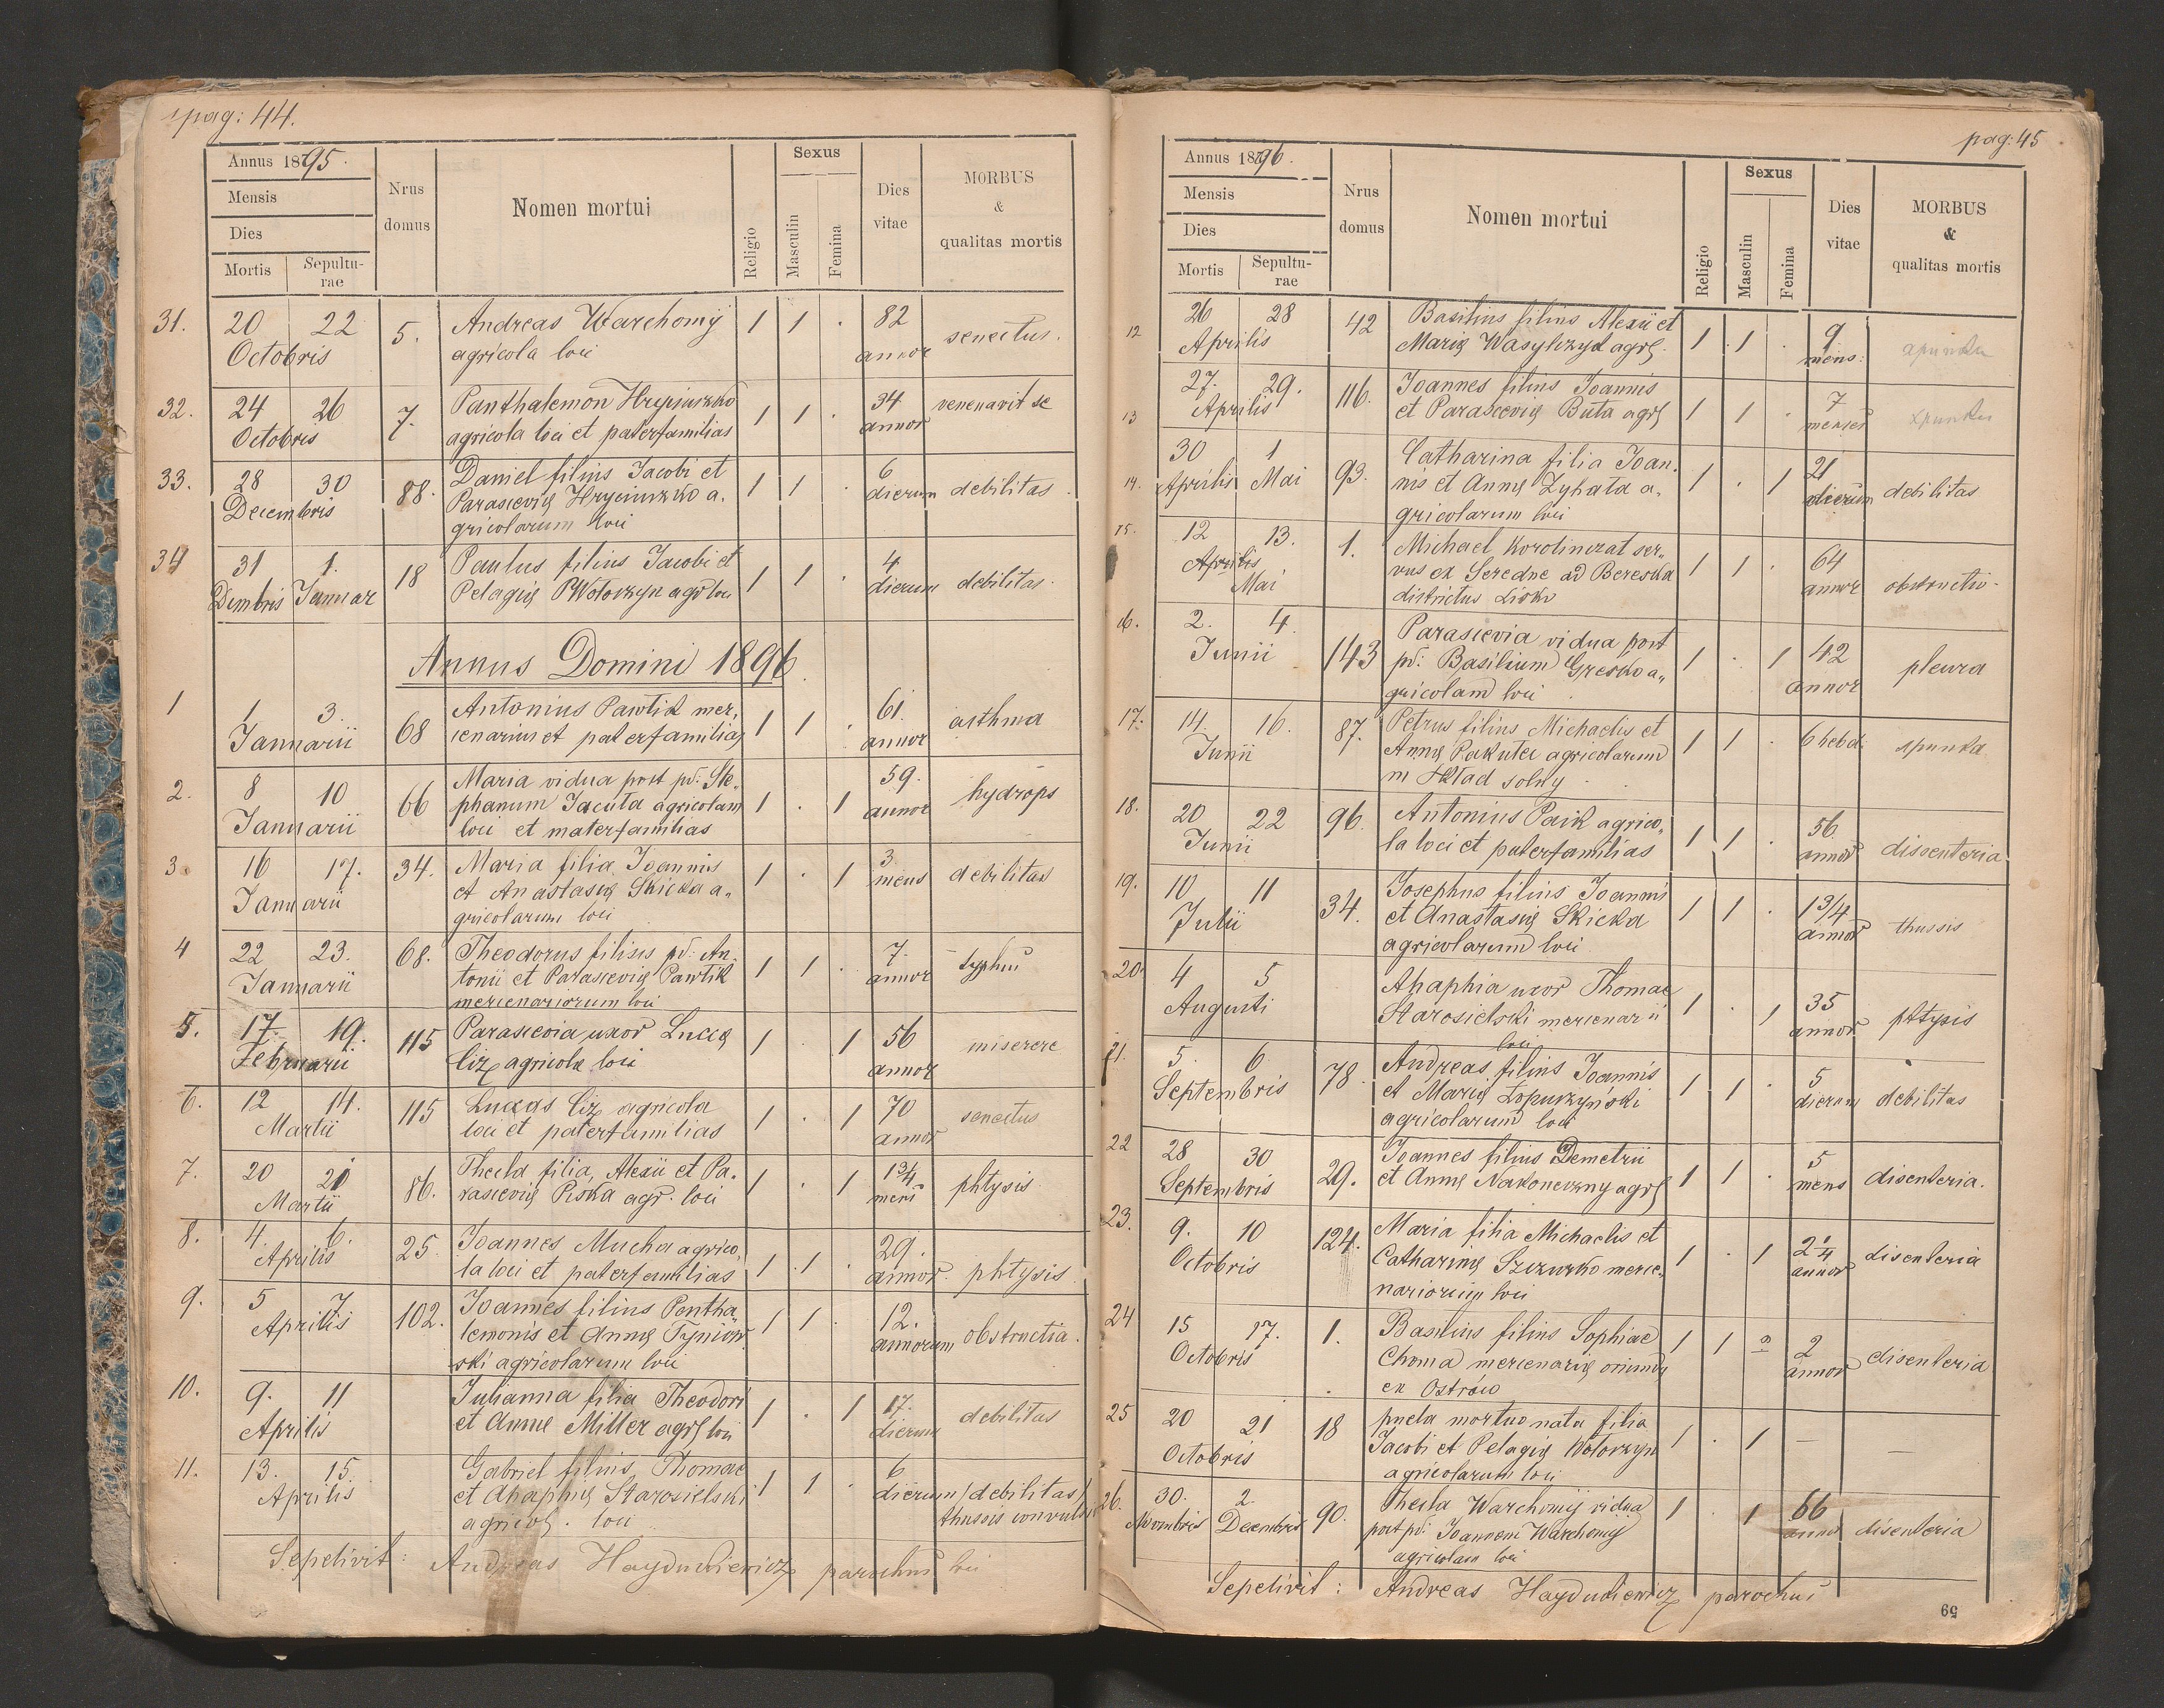 pag: 44.
Annus 1895.
Mensis
Dies
Mortis Sepultu-
rae
Nrus
domus
Nomen mortui
Religio
Sexus
Masculin
Femina
Dies
vitae
MORBUS
&
qualitas mortis
31. 20 22 5. Andreas Warchomij 1 1 . 82 senectus.
Octobris agricola loci annor
32. 24 26 7. Panthalemon Hryciuszko 1 1 . 34 venenavit se
Octobris agricola loci et paterfamilias annor
33. 28 30 88. Daniel filius Jacobi et 1 1 . 6 debilitas.
Decembris Parascevię Hryciuszko a- dierum
gricolarum loci
34 31 1. 18 Paulus filius Jacobi et 1 1 . 4 debilitas.
Dcmbris Januar Pelagię Wołoczyn agr loci dierum
Annus Domini 1896.
1 1 3. 68 Antonius Pawlik mer- 1 1 . 61. asthma
Januarii cenarius et paterfamilias annor
2. 8 10 66 Maria vidua post pd: Ste- 1 . 1 59. hydrops
Januarii phanum Jacuta agricolam annor
loci et materfamilias
3. 16 17. 34. Maria filia Joannis 1 . 1 3 debilitas
Januarii et Anastasię Skicka a- mens
gricolarum loci
4 22 23. 68. Theodorus filius pd: An- 1 1 . 7. typhus
Januarii tonii et Parascevię Pawlik annor
mercenariorum loci
5. 17. 19. 115 Parascevia uxor Lucę 1 . 1 56 miserere
Februarii Ciż agricola loci annor
6. 12 14. 115 Luccas Ciż agricola 1 . 1 70 senectus
Martii loci et paterfamilias annor
7. 20 21 86. Thecla filia Alexii et Pa- 1 . 1 1 3/4 phtysis
Martii rascevię Piska agr. loci mens
8. 4. 6. 25. Joannes Mucha agrico- 1 1 . 29. phtysis
Aprilis la loci et paterfamilias annor.
9. 5 7 102. Joannes filius Pentha- 1 1 . 12. obstructia.
Aprilis lemonis et Annę Tyniow annorum
ski agricolarum loci
10. 9. 11 Julianna filia Theodori 1 . 1 17. debilitas
Aprilis et Annę Miller agrę loci dierum
11. 13. 15. Gabriel filius Thomae 1 1 . 6 debilitas
Aprilis et Ahaphię Starosielski dierum thussis convulsis
agricol. loci
Sepelivit: Andreas Haydukiewicz parochus loci
pag: 45
Annus 1896.
Mensis
Dies
Mortis Sepultu-
rae
Nrus
domus
Nomen mortui
Religio
Sexus
Masculin
Femina
Dies
vitae
MORBUS
&
qualitas mortis
12 26 28 42 Basilius filius Alexii et 1 1 . 9
Aprilis Marię Wasylczyk agrę. mens:
13 27. 29. 116. Joannes filius Joannis 1 1 . 7
Aprilis et Parascevię Buta agrę menses
14. 30 1 93. Catharina filia Joan- 1 . 1 21 debilitas
Aprilis Mai nis et Annę Zyhała a- dierum
gricolarum loci
15. 12 13. 1. Michael Korolinczat ser- 1 1 . 64 obstructio.
Aprilis vus ex Seredne ad Bereska annor
Mai districtus Lisko
16. 2. 4. 143 Parascevia vidua post 1 . 1 42 pleura
Junii pd: Basilium Gresko a- annor
gricolam loci
17. 14. 16. 87. Petrus filius Michaelis et 1 1 . 6 hebd. spunka
Junii Annę Pakuta agricolarum
in Hład solny
18. 20 22 96. Antonius Paik agrico- 1 1 . 56 dissenteria
Junii la loci et paterfamilias annor
19. 10 11 34. Josephus filius Joannis 1 1 . 1 3/4 thussis
Julii et Anastasię Skicka annor
agricolarum loci
20. 4 5 Ahaphia uxor Thomae 1 . 1 35 phtysis
Augusti Starosielski mercenarii annor
loci
21. 5. 6. 78 Andreas filius Joannis 1 1 . 5 debilitas
Septembris et Marię Łopuszyński dierum
agricolarum loci
22 28 30 29. Joannes filius Demetrii 1 1 . 5 disenteria.
Septembris et Annę Nakoneczny agrę mens
23. 9. 10 124. Maria filia Michaelis et 1 . 1 2 1/4 disenteria
Octobris Catharinę Szczurko merce- annor
nariorum loci
24 15 17. 1. Basilius filius Sophiae 1 1 2 disenteria
Octobris Choma mercenarię oriundę annor
ex Ostrów
25 20 21 18 puela mortuo nata filia 1 . 1 — —
Octobris Jacobi et Pelagię Wołoczyn
agricolarum loci
26. 30. 2 90. Thecla Warchomij vidua 1 . 1 66 disenteria
Novembris Decembris post pd: Joannem Warchomij annor
agricolam loci
Sepelivit: Andreas Haydukiewicz parochus
59